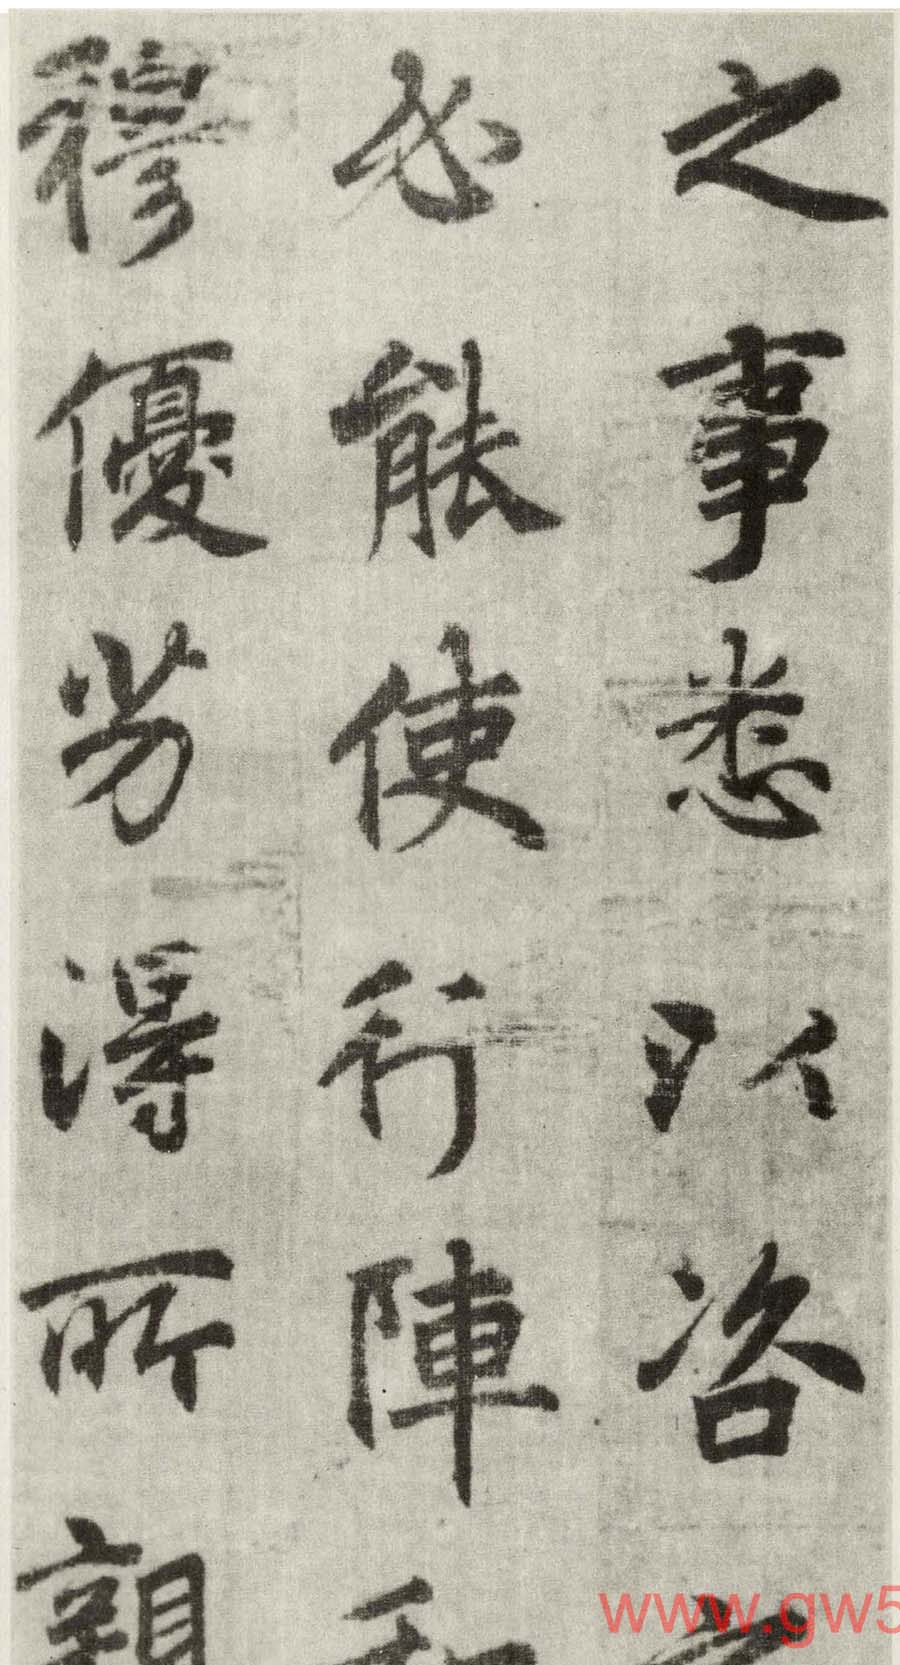 之事悉以咨
必能使行陣和
穆優劣得所親
www.gw5